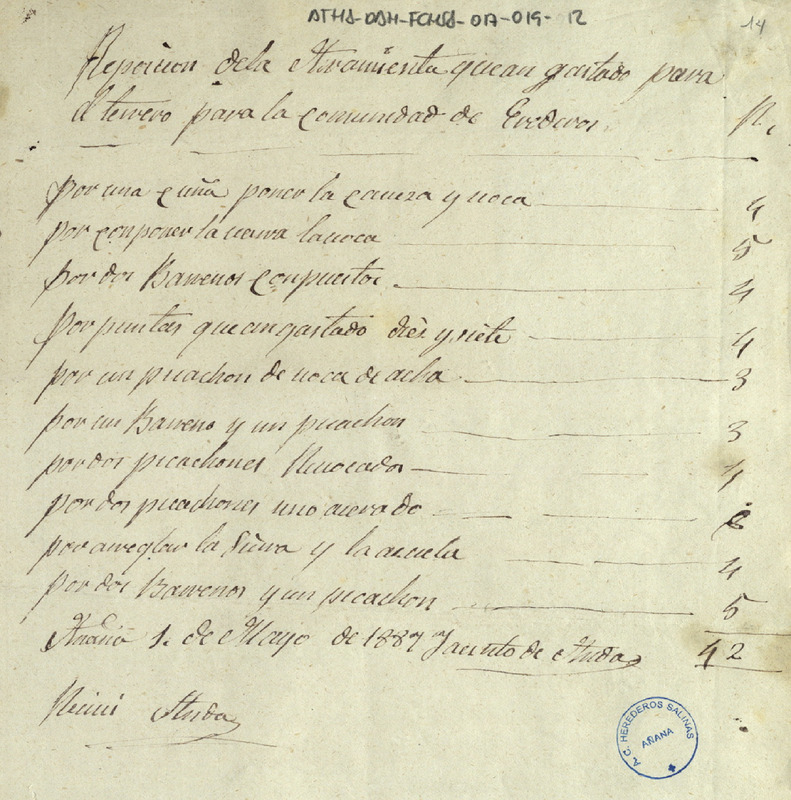 ATHA-DAH-FCMSA-017-019-12
14
Reposicion dela Arramienta que an gastado para
el terrero para la comunidad de Erederos. R.
por una cuña poner la caueza y uoca 4
por conponer la uarra la uoca 5
por dos Barrenos conpuestos 4
por puntas que an gastado diez y siete 4
por un picachon de uoca de acha 3
por un Barreno y un picachon 3
por dos picachones Reuocados 4
por dos picachones uno acerado
por arreglar la Sierra y la azuela 4
por dos Barrenos y un picachon 5
Añana 1. de Mayo de 1887 Jacinto de Anda 42
Reciui Anda
A. C. HEREDEROS SALINAS
AÑANA